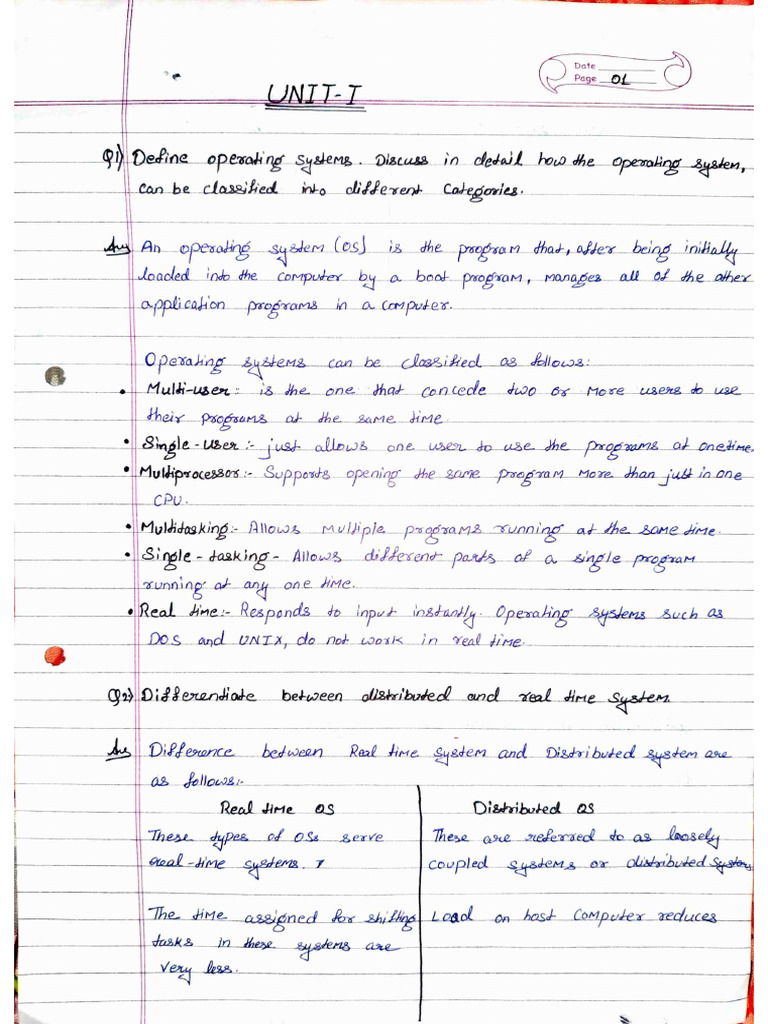 Date
Page 01
UNIT-I
Q1) Define operating systems. Discuss in detail how the operating system,
can be classified into different categories.
Ans An operating system (OS) is the program that, after being initially
loaded into the computer by a boot program, manages all of the other
application programs in a computer.
Operating systems can be classified as follows:
• Multi-user: is the one that concede two or more users to use
their programs at the same time
• Single-user:- just allows one user to use the programs at one time.
• Multiprocessor:- Supports opening the same program more than just in one
CPU.
• Multitasking:- Allows multiple programs running at the same time.
• Single-tasking- Allows different parts of a single program
running at any one time.
• Real time:- Responds to input instantly. Operating systems such as
DOS and UNIX, do not work in real time.
Q2) Differentiate between distributed and real time system.
Ans Difference between Real time system and Distributed system are
as follows:-
Real time OS Distributed OS
These types of OSs serve These are referred to as loosely
real-time systems. coupled systems or distributed systems
The time assigned for shifting Load on host computer reduces
tasks in these systems are
very less.